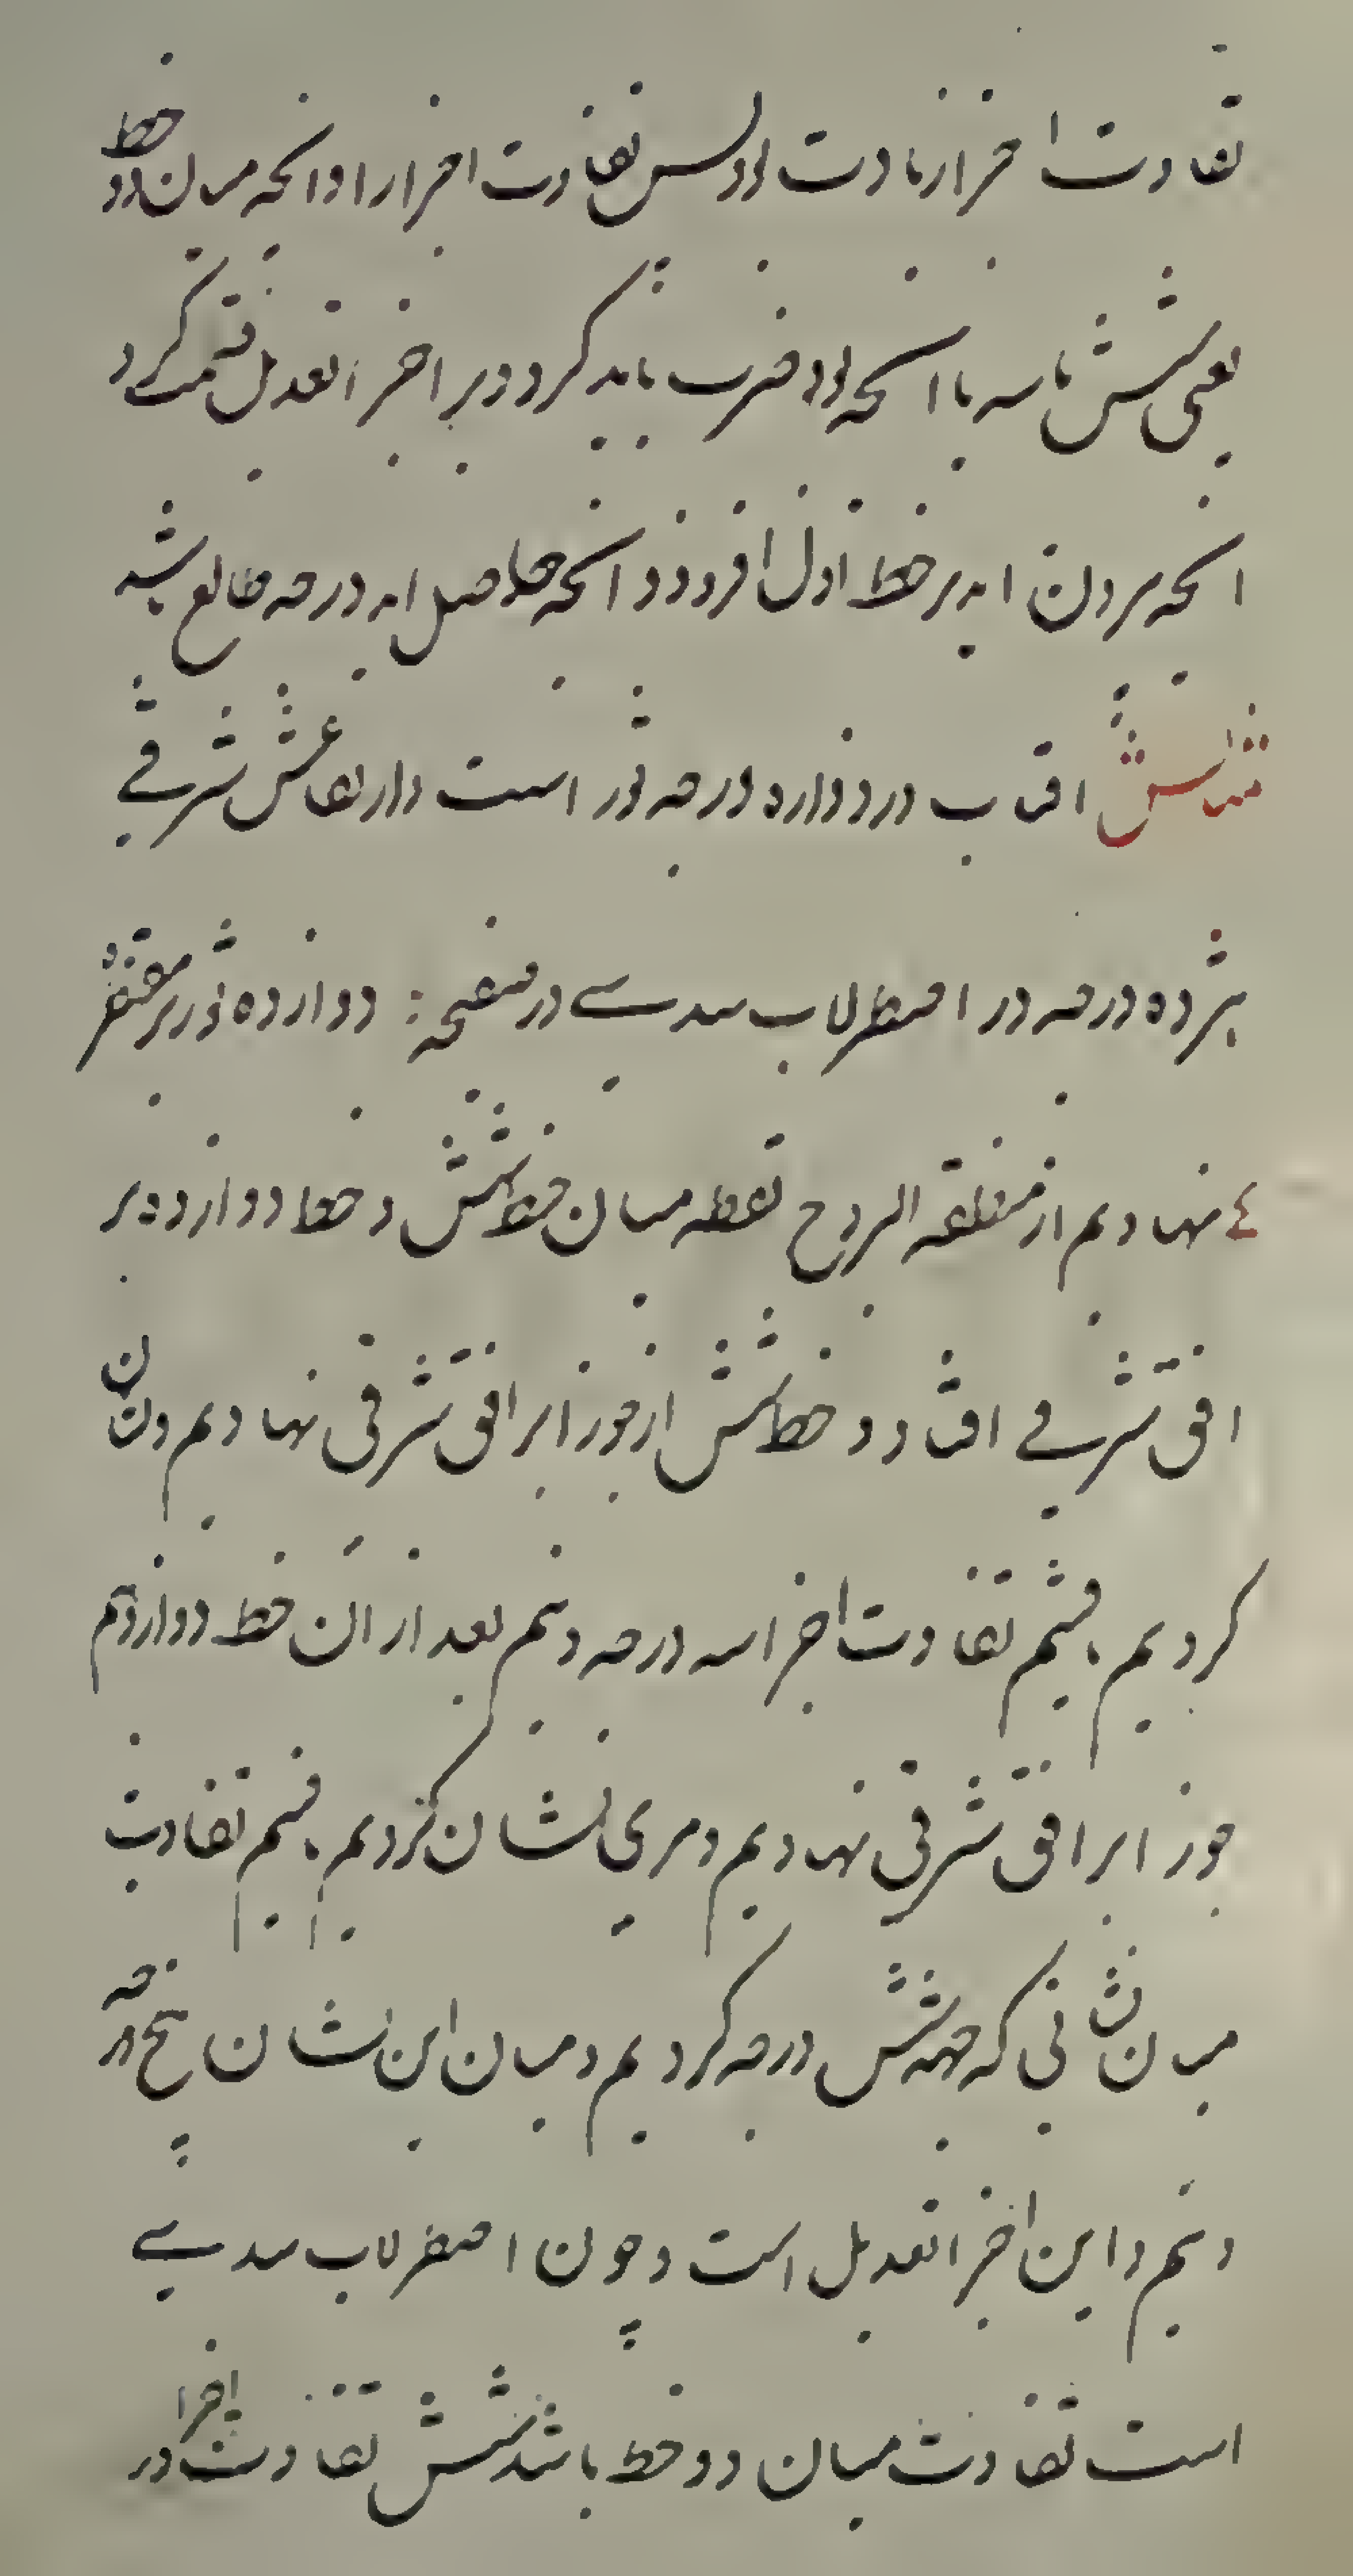 تفاوت اجزا زیادت بود پس تفاوت اجزا را در انچه میان دو خط
یعنی شش یا سه یا انچه بود ضرب باید کرد و بر اجزا تعدیل قسمت کرد
انچه بیرون اید بر خط اول افزود و انچه حاصل اید درجه طالع باشد
مثالش افتاب در دوازده درجه ثور است و ارتفاعش شرقی
هژده درجه در اصطرلاب سدسی در صفحه دوازده ثور بر مقنطره
نهادیم از منطقه البروج نقطه میان خط شش و خط دوازده بر
افق شرقی افتاد و خط شش از جوزا بر افق شرقی نهادیم و نشان
کردیم قسم تفاوت اجزا سه درجه و نیم بعد از ان خط دوازدهم
جوزا بر افق شرقی نهادیم و مری نشان کردیم قسم تفاوت
میان نشانی که جهة شش درجه کردیم و میان این نشان پنج درجه
و نیم و این اجزا تعدیل است و چون اصطرلاب سدسی
است تفاوت میان دو خط باشد شش تفاوت اجزا در